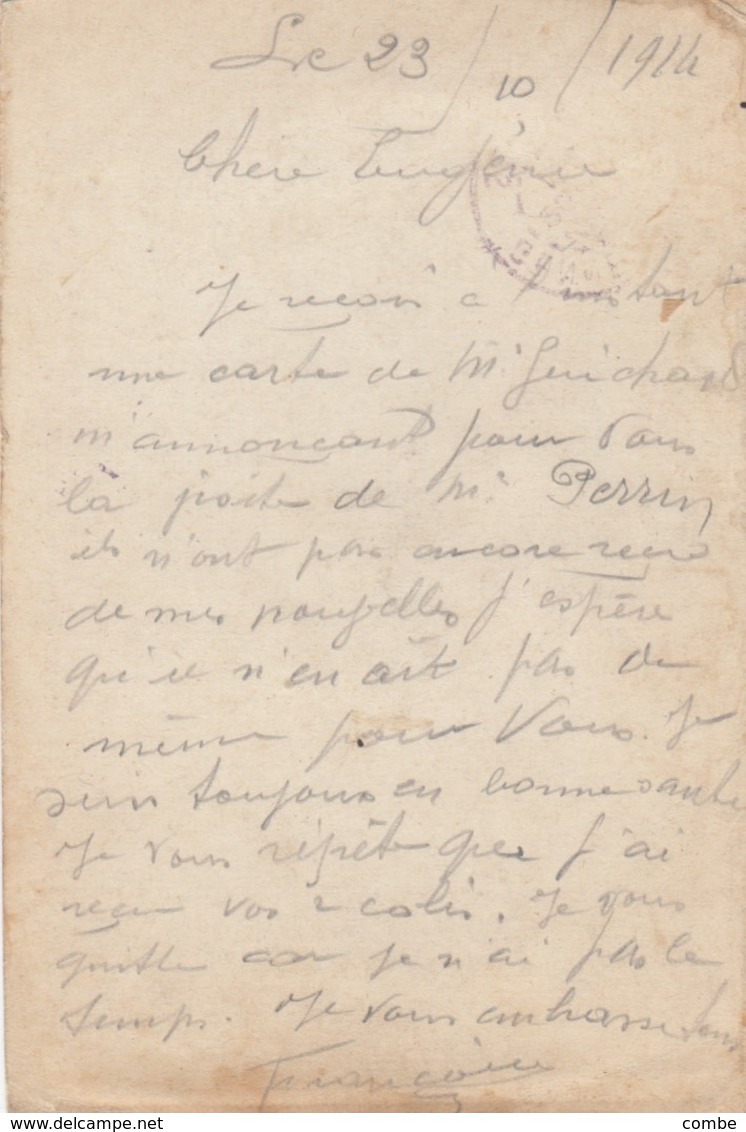 Le 23 / 10 / 1914
Chère Eugénie
Je reçois a l'instant
une carte de Mr Guichard
m'annonçant pour vous
la poste de Mr Perrin
ils n'ont pas encore recu
de mes nouvelles j'espère
qu'il n'en ait pas de
même pour vous. Je
suis toujours en bonne santé
Je vous répète que j'ai
recu vos 2 colis. Je vous
quitte car je n'ai pas le
temps. Je vous embrasse tous
combe
delcampe.net